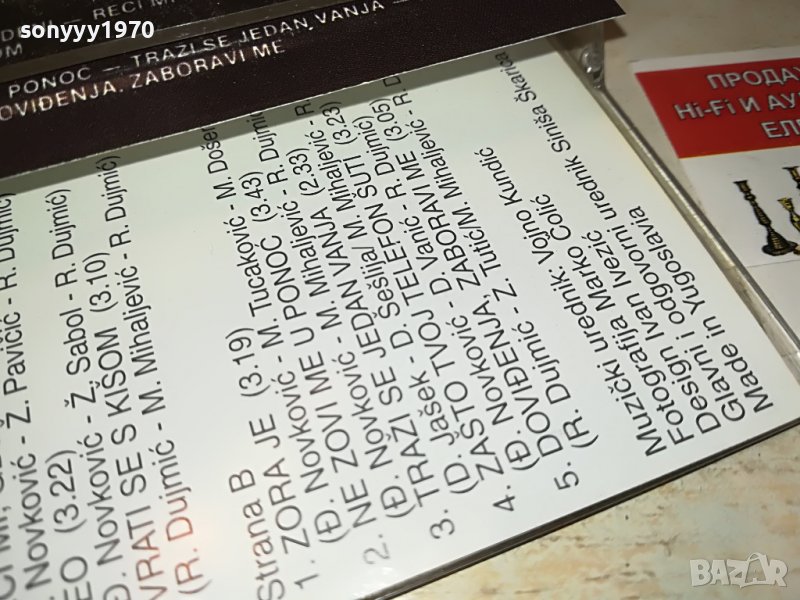 sonyyy1970
RECI MI
PONOĆ — TRAŽI SE JEDAN VANJA —
OVIĐENJA, ZABORAVI ME
Novković - Ž. Pavičić - R. Dujmić)
EO (3.22)
Đ. Novković - Ž. Sabol - R. Dujmić)
VRATI SE S KIŠOM (3.10)
(R. Dujmić - M. Mihaljević - R. Dujmić)
Strana B
1. ZORA JE (3.19)
(Đ. Novković - M. Tucaković - M. Došen
2. NE ZOVI ME U PONOĆ (3.43)
(Đ. Novković - M. Mihaljević - R. Dujmi
3. TRAŽI SE JEDAN VANJA (2.33)
(D. Jašek - D. Šešlija/M. Mihaljević - R
4. ZAŠTO TVOJ TELEFON ŠUTI (3.23)
(Đ. Novković - D. Vanić - R. Dujmić)
5. DOVIĐENJA, ZABORAVI ME (3.05)
(R. Dujmić - Z. Tutić/M. Mihaljević - R. D
Muzički urednik: Vojno Kundić
Fotografija Marko Čolić
Design Ivan Ivezić
Glavni i odgovorni urednik Siniša Škarica
Made in Yugoslavia
ПРОДА
Hi-Fi И АУ
ЕЛ
BAZAR